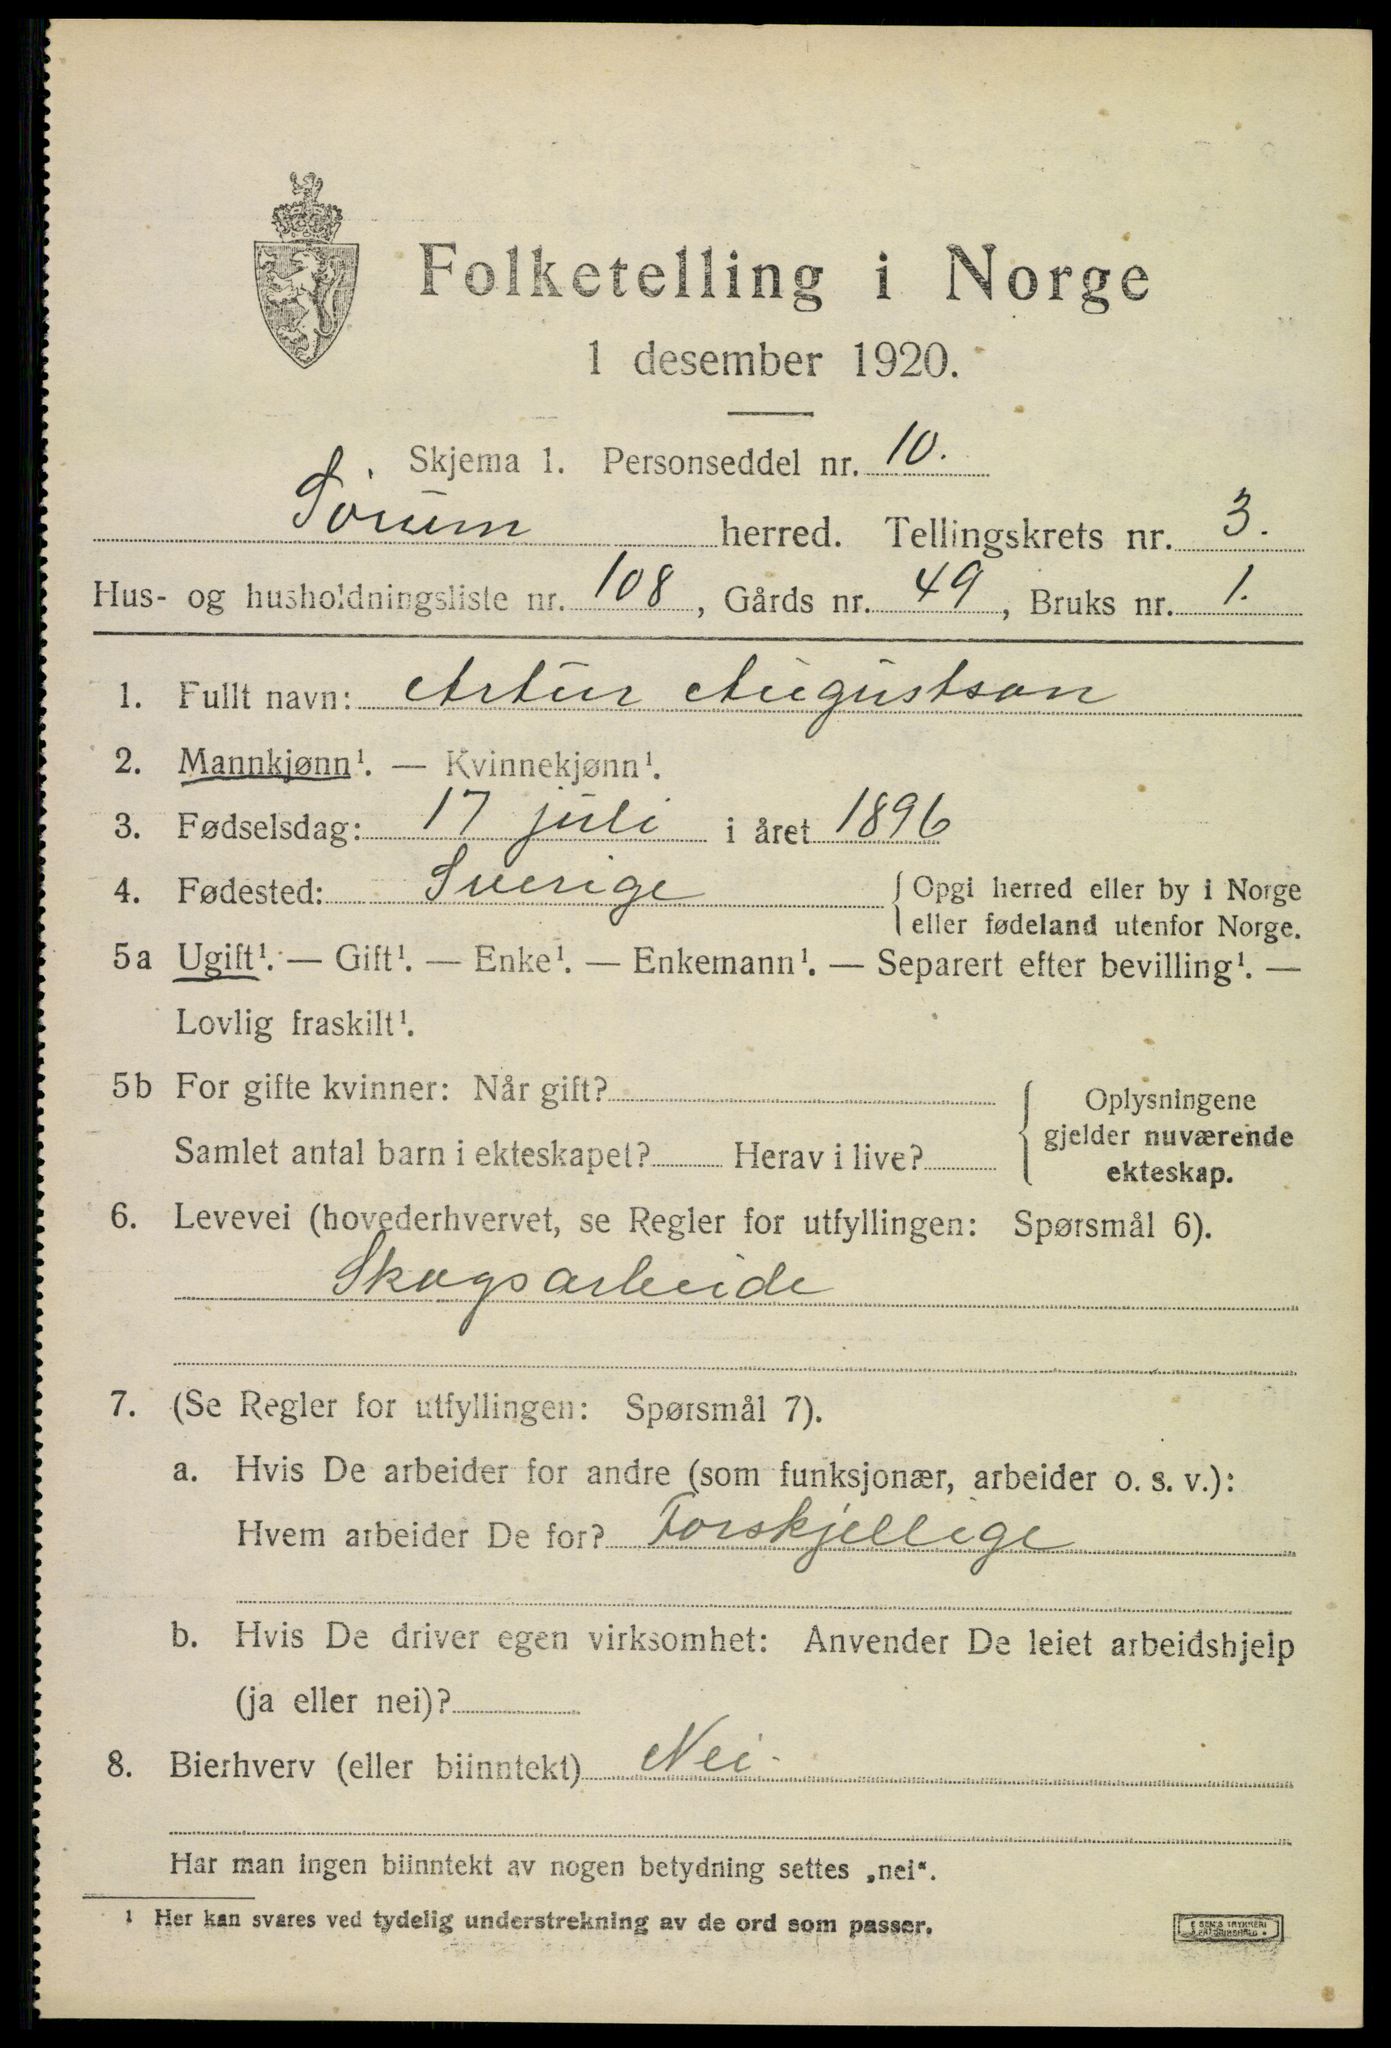 Folketelling i Norge
1 desember 1920.
Skjema 1. Personseddel nr. 10.
Sørum herred. Tellingskrets nr. 3.
Hus- og husholdningsliste nr. 108, Gårds nr. 49, Bruks nr. 1.
1. Fullt navn: Artur Augustson
2. Mannkjønn¹. — Kvinnekjønn¹.
3. Fødselsdag: 17 juli i året 1896
4. Fødested: Sverige { Opgi herred eller by i Norge
eller fødeland utenfor Norge.
5a Ugift¹. — Gift¹. — Enke¹. — Enkemann¹. — Separert efter bevilling¹. —
Lovlig fraskilt¹.
5b For gifte kvinner: Når gift?
Samlet antal barn i ekteskapet? Herav i live?
Oplysningene
gjelder nuværende
ekteskap.
6. Levevei (hovederhvervet, se Regler for utfyllingen: Spørsmål 6).
Skogsarbeide
7. (Se Regler for utfyllingen: Spørsmål 7).
a. Hvis De arbeider for andre (som funksjonær, arbeider o. s. v.):
Hvem arbeider De for? Forskjellige
b. Hvis De driver egen virksomhet: Anvender De leiet arbeidshjelp
(ja eller nei)?
8. Bierhverv (eller biinntekt) Nei.
Har man ingen biinntekt av nogen betydning settes „nei“.
¹ Her kan svares ved tydelig understrekning av de ord som passer.